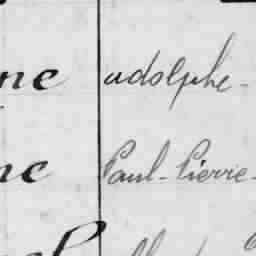 ne adolphe-
ne Paul-Pierre-